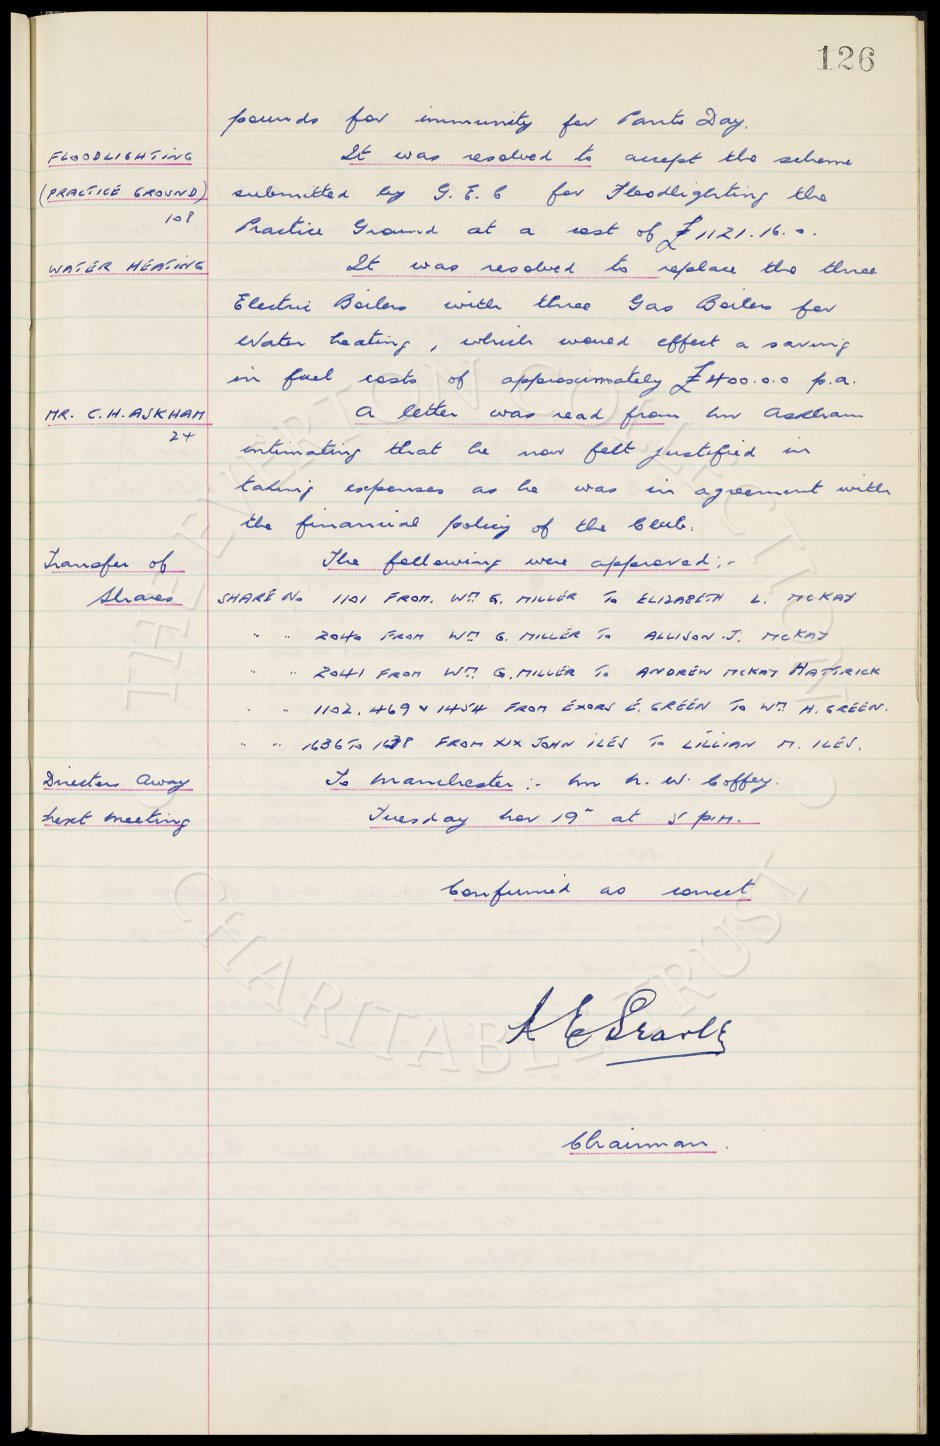 126
pounds for immunity for Pants Day.
FLOODLIGHTING It was resolved to accept the scheme
(PRACTICE GROUND) submitted by G. E. C for Floodlighting the
108 Practice Ground at a cost of £1121.16.0.
WATER HEATING It was resolved to replace the three
Electric Boilers with three Gas Boilers for
Water heating, which would effect a saving
in fuel costs of approximately £400.0.0 p.a.
MR. C.H. ASKHAM A letter was read from Mr Askham
24 intimating that he now felt justified in
taking expenses as he was in agreement with
the financial policy of the Club.
Transfer of The following were approved:-
Shares SHARE No 1101 FROM. WM G. MILLER To ELIZABETH L. McKAY
" " 2040 FROM WM G. MILLER To ALLISON J. McKAY
" " 2041 FROM WM G. MILLER To ANDREW McKAY HATTRICK
" " 1102. 469 & 1454 FROM EXORS E. GREEN To WM H. GREEN.
" " 1636 To 1638 FROM XIX JOHN ILES To LILLIAN M. ILES.
Directors Away To Manchester:- Mr N. W. Coffey.
Next Meeting Tuesday Nov 19" at 5 p.m.
Confirmed as correct
A E Searle
Chairman.
THE EVERTON COLLECTION
CHARITABLE TRUST